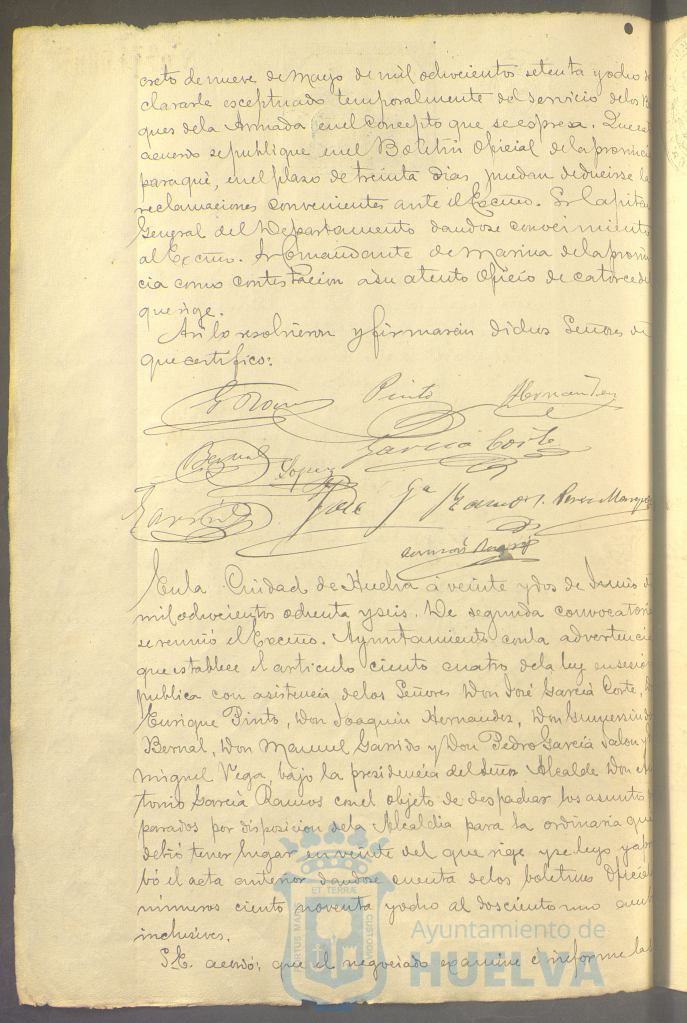 creto de nueve de Mayo de mil ochocientos setenta y ocho de
clararle esceptuado temporalmente del servicio de los B
ques de la Armada en el concepto que se espresa. Que est
acuerdo se publique en el Boletin Oficial de la provinci
para que, en el plazo de treinta dias, puedan deducirse la
reclamaciones convenientes ante el Excmo. Sr Capitan
General del Departamento dandose conocimiento
al Excmo. Sr Comandante de Marina de la provin
cia como contestacion a su atento Oficio de catorce de
que rige.
Asi lo resolvieron y firmaran dichos Señores de
que certifico:
Pinto Hernandez
Bernal Lopez Garcia Corte
Garrido José Gª Ramos Perez
En la Ciudad de Huelva á veinte y dos de Junio d
mil ochocientos ochenta y seis. De segunda convocatoria
se reunió el Excmo. Ayuntamiento con la advertencia
que establece el articulo ciento cuatro de la ley en sesión
publica con asistencia de los Señores Don José García Corte, D
Enrique Pinto, Don Joaquin Hernandez, Don Gumersindo
Bernal, Don Manuel Garrido y Don Pedro García Jalon y
Miguel Vega, bajo la presidencia del Señor Alcalde Don An
tonio García Ramos con el objeto de despachar los asuntos
parados por disposicion de la Alcaldia para la ordinaria que
debió tener lugar en veinte del que rige y se leyo y apr
bó el acta anterior dandose cuenta de los boletines Oficial
números ciento noventa y ocho al doscientos uno amb
inclusives.
S.E. acordó: que el negociado examine é informe la
ET TERRA
PORTUS MARIS
CUSTODIA
Ayuntamiento de
HUELVA